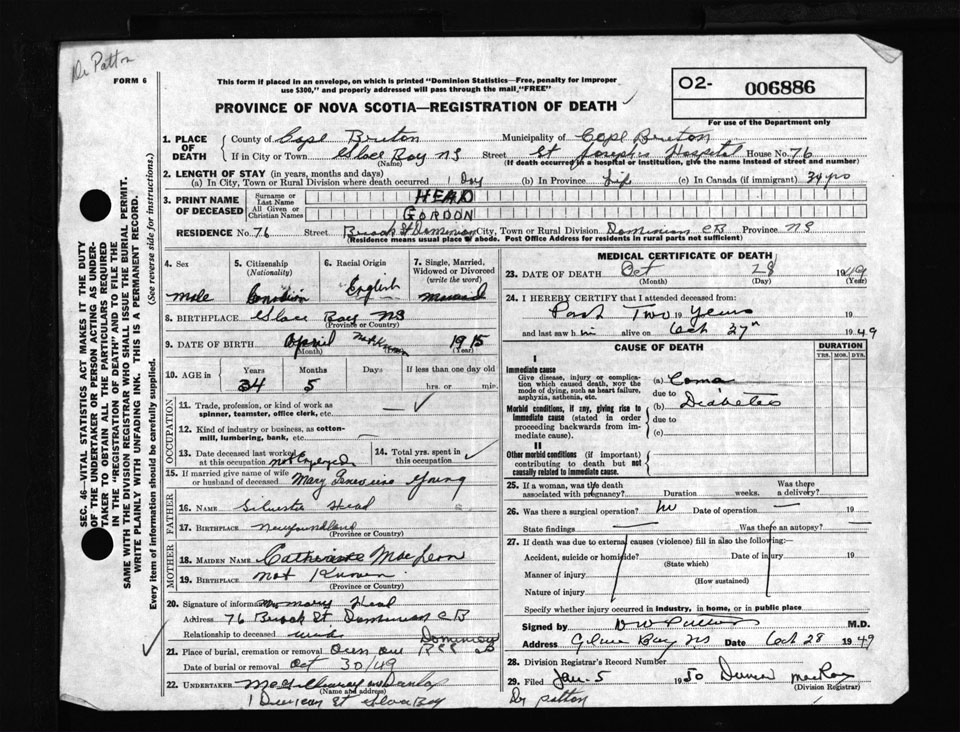 Dr Patton
FORM 6
This form if placed in an envelope, on which is printed "Dominion Statistics—Free, penalty for improper
use $300," and properly addressed will pass through the mail "FREE"
PROVINCE OF NOVA SCOTIA—REGISTRATION OF DEATH
O2- 006886
For use of the Department only
SEC. 46—VITAL STATISTICS ACT MAKES IT THE DUTY
OF THE UNDERTAKER OR PERSON ACTING AS UNDER-
TAKER TO OBTAIN ALL THE PARTICULARS REQUIRED
IN THE "REGISTRATION OF DEATH" AND TO FILE THE
SAME WITH THE DIVISION REGISTRAR WHO SHALL ISSUE THE BURIAL PERMIT.
WRITE PLAINLY WITH UNFADING INK. THIS IS A PERMANENT RECORD.
Every item of information should be carefully supplied. (See reverse side for instructions.)
1. PLACE OF DEATH County of Cape Breton Municipality of Cape Breton
If in City or Town Glace Bay NS Street St Joseph's Hospital House No. 76
(Name) (If death occurred in a hospital or institution, give the name instead of street and number)
2. LENGTH OF STAY (in years, months and days)
(a) In City, Town or Rural Division where death occurred 1 Day (b) In Province life (c) In Canada (if immigrant) 34 yrs
3. PRINT NAME OF DECEASED Surname or Last Name HEAD
All Given or Christian Names GORDON
RESIDENCE No. 76 Street Brook St Dominion City, Town or Rural Division Dominion CB Province NS
(Residence means usual place of abode. Post Office Address for residents in rural parts not sufficient)
4. Sex 5. Citizenship (Nationality) 6. Racial Origin 7. Single, Married, Widowed or Divorced (write the word)
Male Canadian English Married
8. BIRTHPLACE Glace Bay NS
(Province or Country)
9. DATE OF BIRTH April Not Known 1915
(Month) (Year)
10. AGE in Years Months Days If less than one day old
34 5 hrs. or min.
OCCUPATION
11. Trade, profession, or kind of work as
spinner, teamster, office clerk, etc. —
12. Kind of industry or business, as cotton-
mill, lumbering, bank, etc. —
13. Date deceased last worked at this occupation not Employed 14. Total yrs. spent in this occupation
15. If married give name of wife
or husband of deceased Mary Genevieve Young
FATHER
16. Name Silvester Head
17. Birthplace Newfoundland
(Province or Country)
MOTHER
18. MAIDEN NAME Catherine MacLean
19. BIRTHPLACE Not Known
(Province or Country)
20. Signature of informant Mrs Mary Head
Address 76 Brook St. Dominion CB
Relationship to deceased wife
21. Place of burial, cremation or removal Dominion CB
Date of burial or removal Oct 30/49
22. UNDERTAKER McGillivary Dunlop
(Name and address)
1 Duncan St Glace Bay
MEDICAL CERTIFICATE OF DEATH
23. DATE OF DEATH Oct 28 1949
(Month) (Day) (Year)
24. I HEREBY CERTIFY that I attended deceased from:
Past Two 19 Years 19
and last saw him alive on Oct 27th 1949
CAUSE OF DEATH DURATION
YRS. MOS. DYS.
I
Immediate cause
Give disease, injury or compli-
cation which caused death, not the
mode of dying, such as heart failure,
asphyxia, asthenia, etc.
(a) Coma
due to
Morbid conditions, if any, giving rise to
immediate cause (stated in order
proceeding backwards from im-
mediate cause).
(b) Diabetes
due to
(c)
II
Other morbid conditions (if important)
contributing to death but not
causally related to immediate cause.
25. If a woman, was the death associated with pregnancy? Duration weeks. Was there a delivery?
26. Was there a surgical operation? no Date of operation — 19
State findings Was there an autopsy? —
27. If death was due to external causes (violence) fill in also the following:—
Accident, suicide or homicide? Date of injury 19
(State which)
Manner of injury
(How sustained)
Nature of injury
Specify whether injury occurred in industry, in home, or in public place
Signed by D W Patton M.D.
Address Glace Bay NS Date Oct 28 1949
28. Division Registrar's Record Number
29. Filed Jan-5 1950 Duncan MacRay
(Division Registrar)
Dr patton